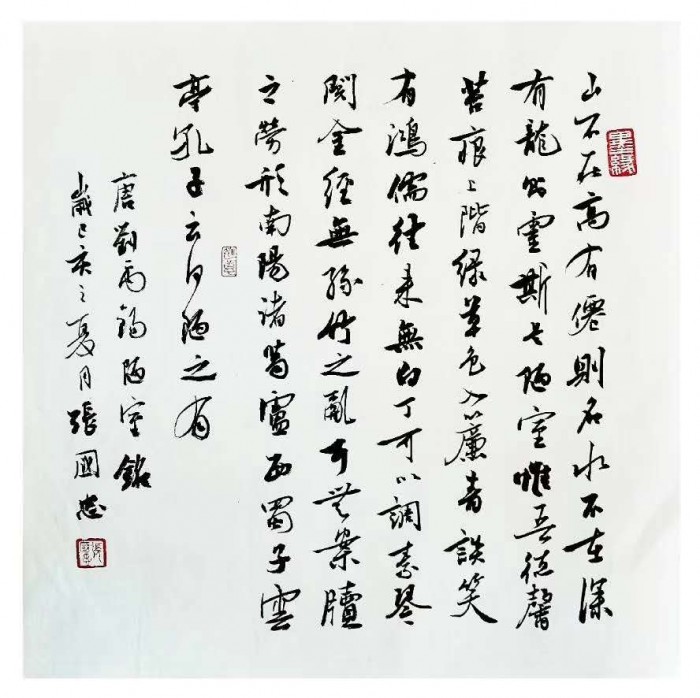 山不在高有僊則名水不在深
有龍則靈斯是陋室惟吾德馨
苔痕上階綠草色入簾青談笑
有鴻儒往來無白丁可以調素琴
閱金經無絲竹之亂耳無案牘
之勞形南陽諸葛廬西蜀子雲
亭孔子云何陋之有
唐劉禹錫陋室銘
歲己亥之夏月張國
墨緣